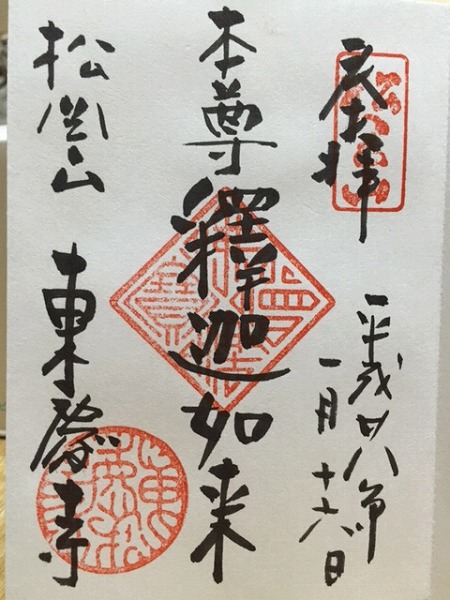 平成廿八年
一月十六日
本尊釋迦如来
松岡山 東慶寺